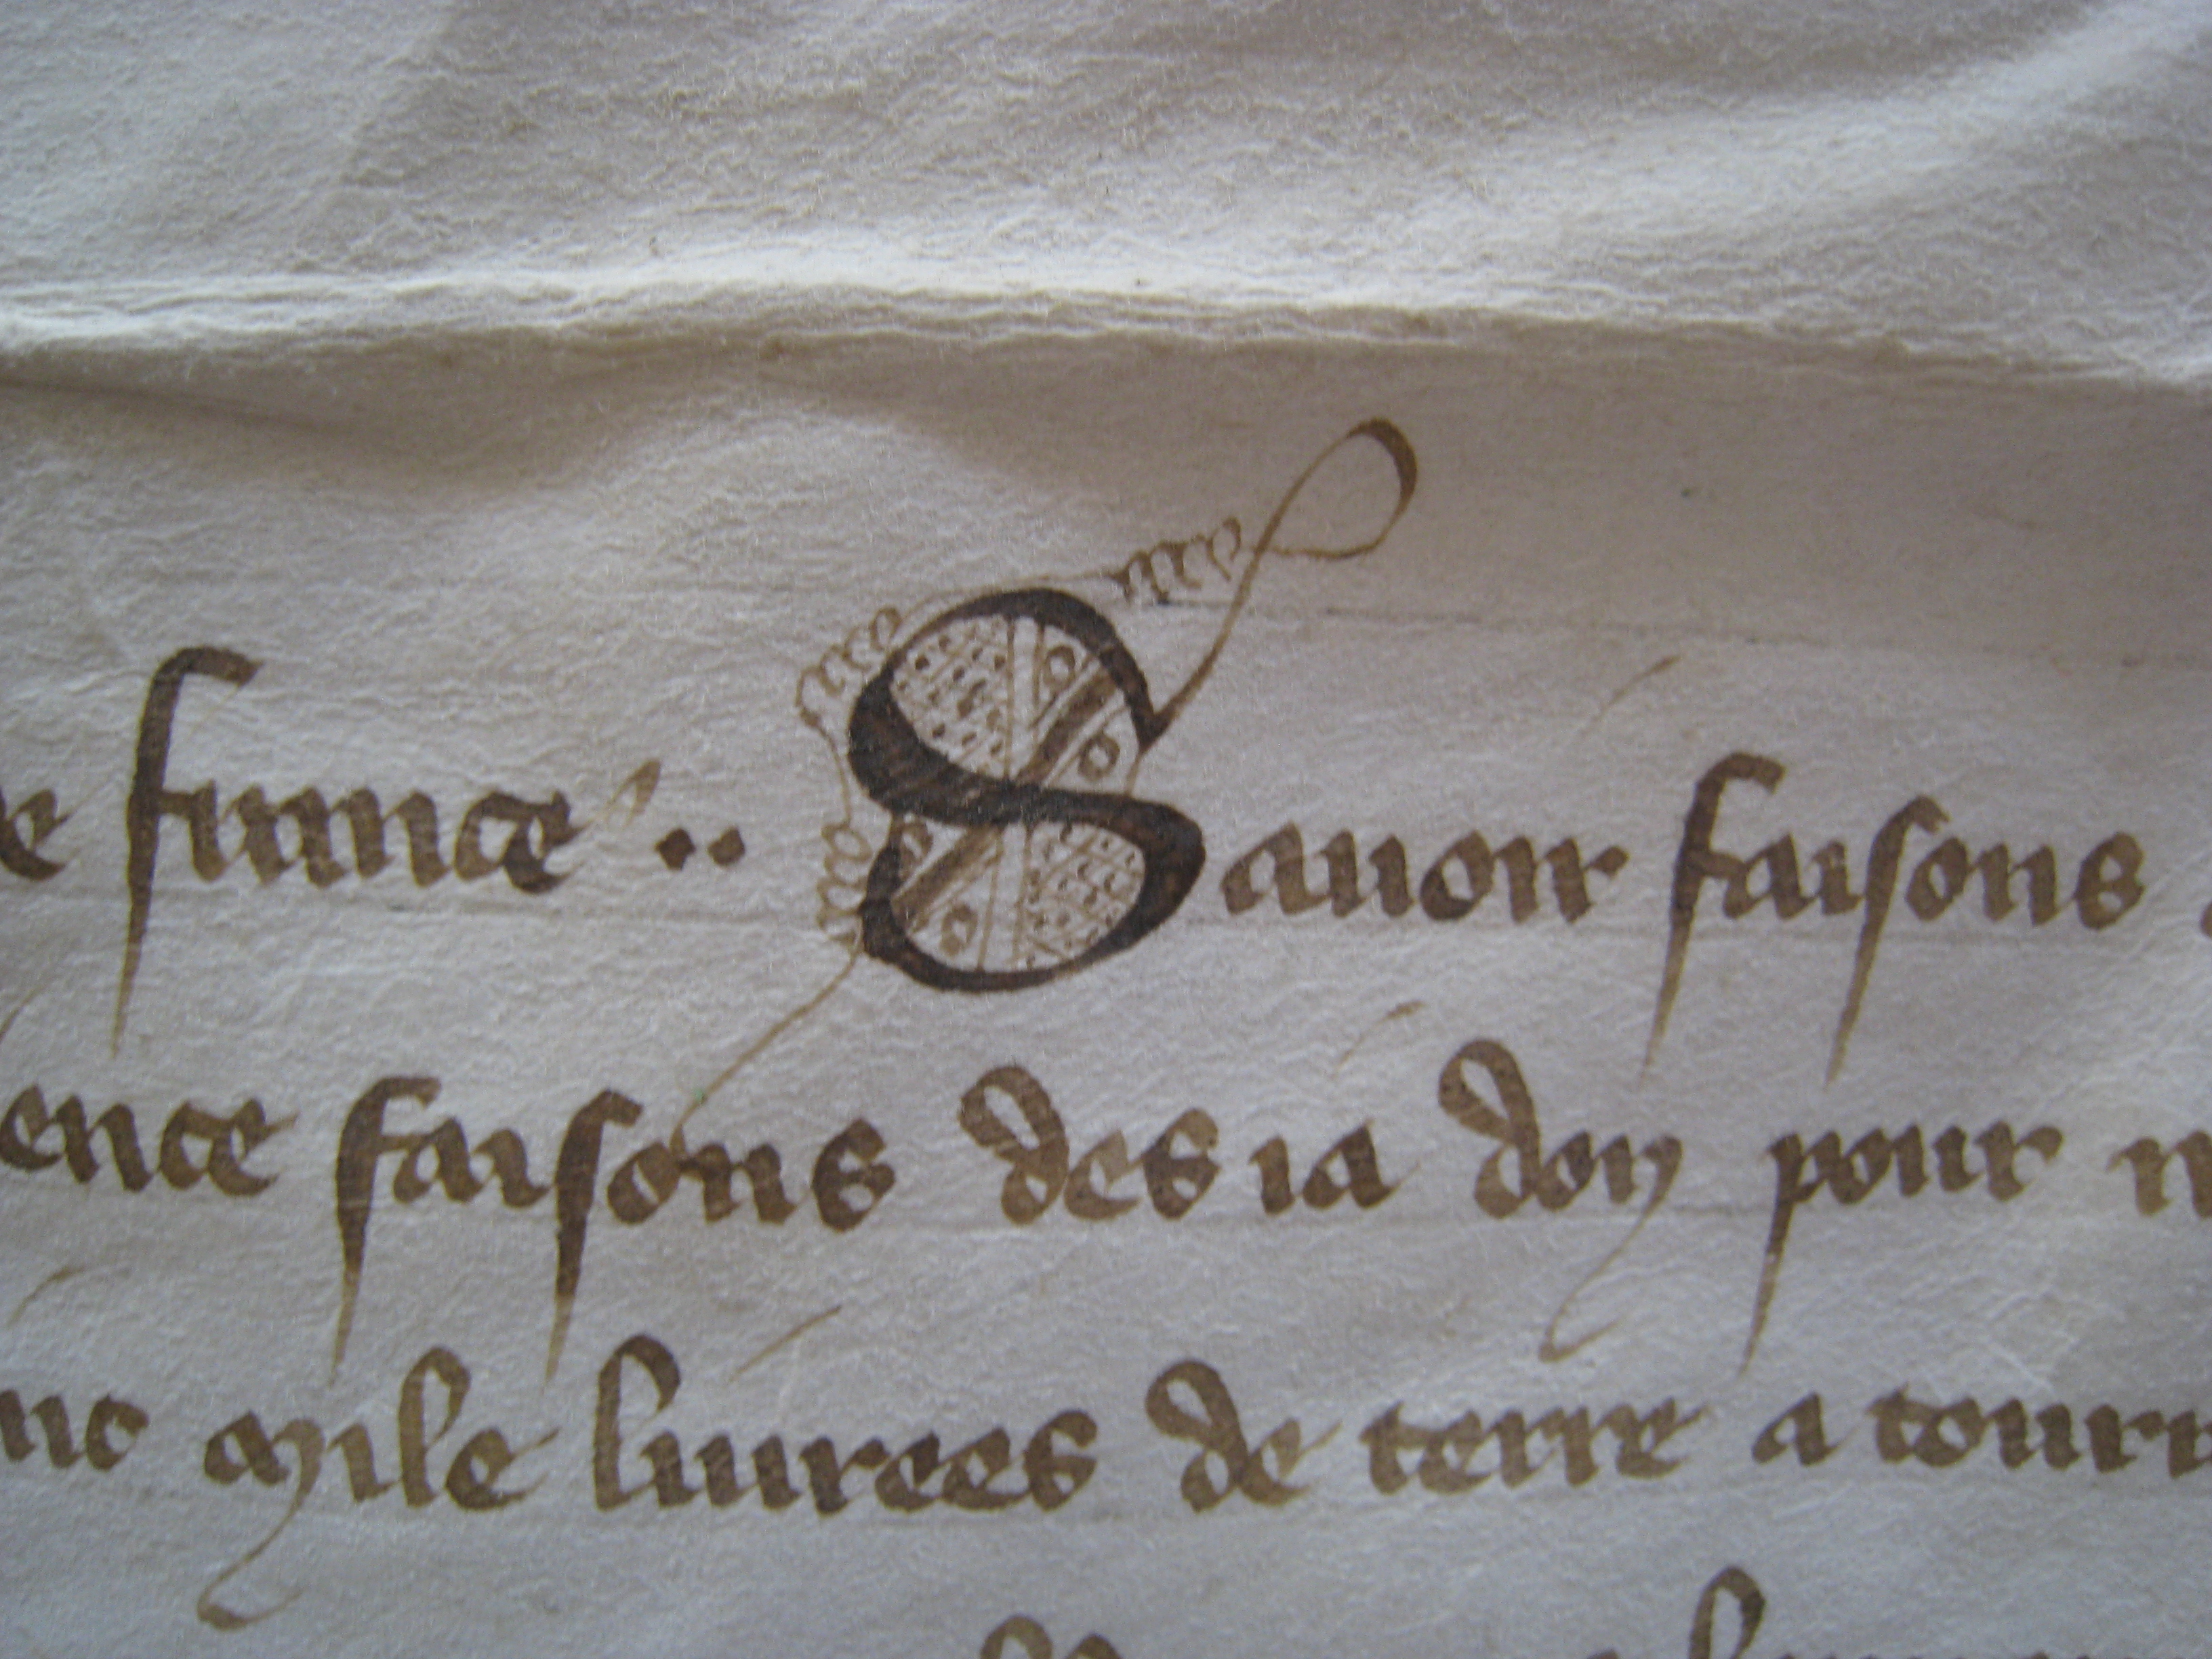 france .. Sauoir faisons
ence faisons des ia don pour n
mile liurees de terre a tourn